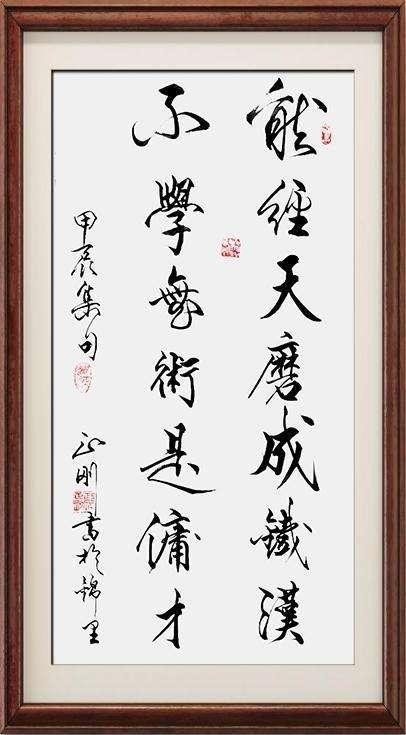 能經天磨成鐵漢
不學無術是傭才
甲辰集句
正剛書於錦里